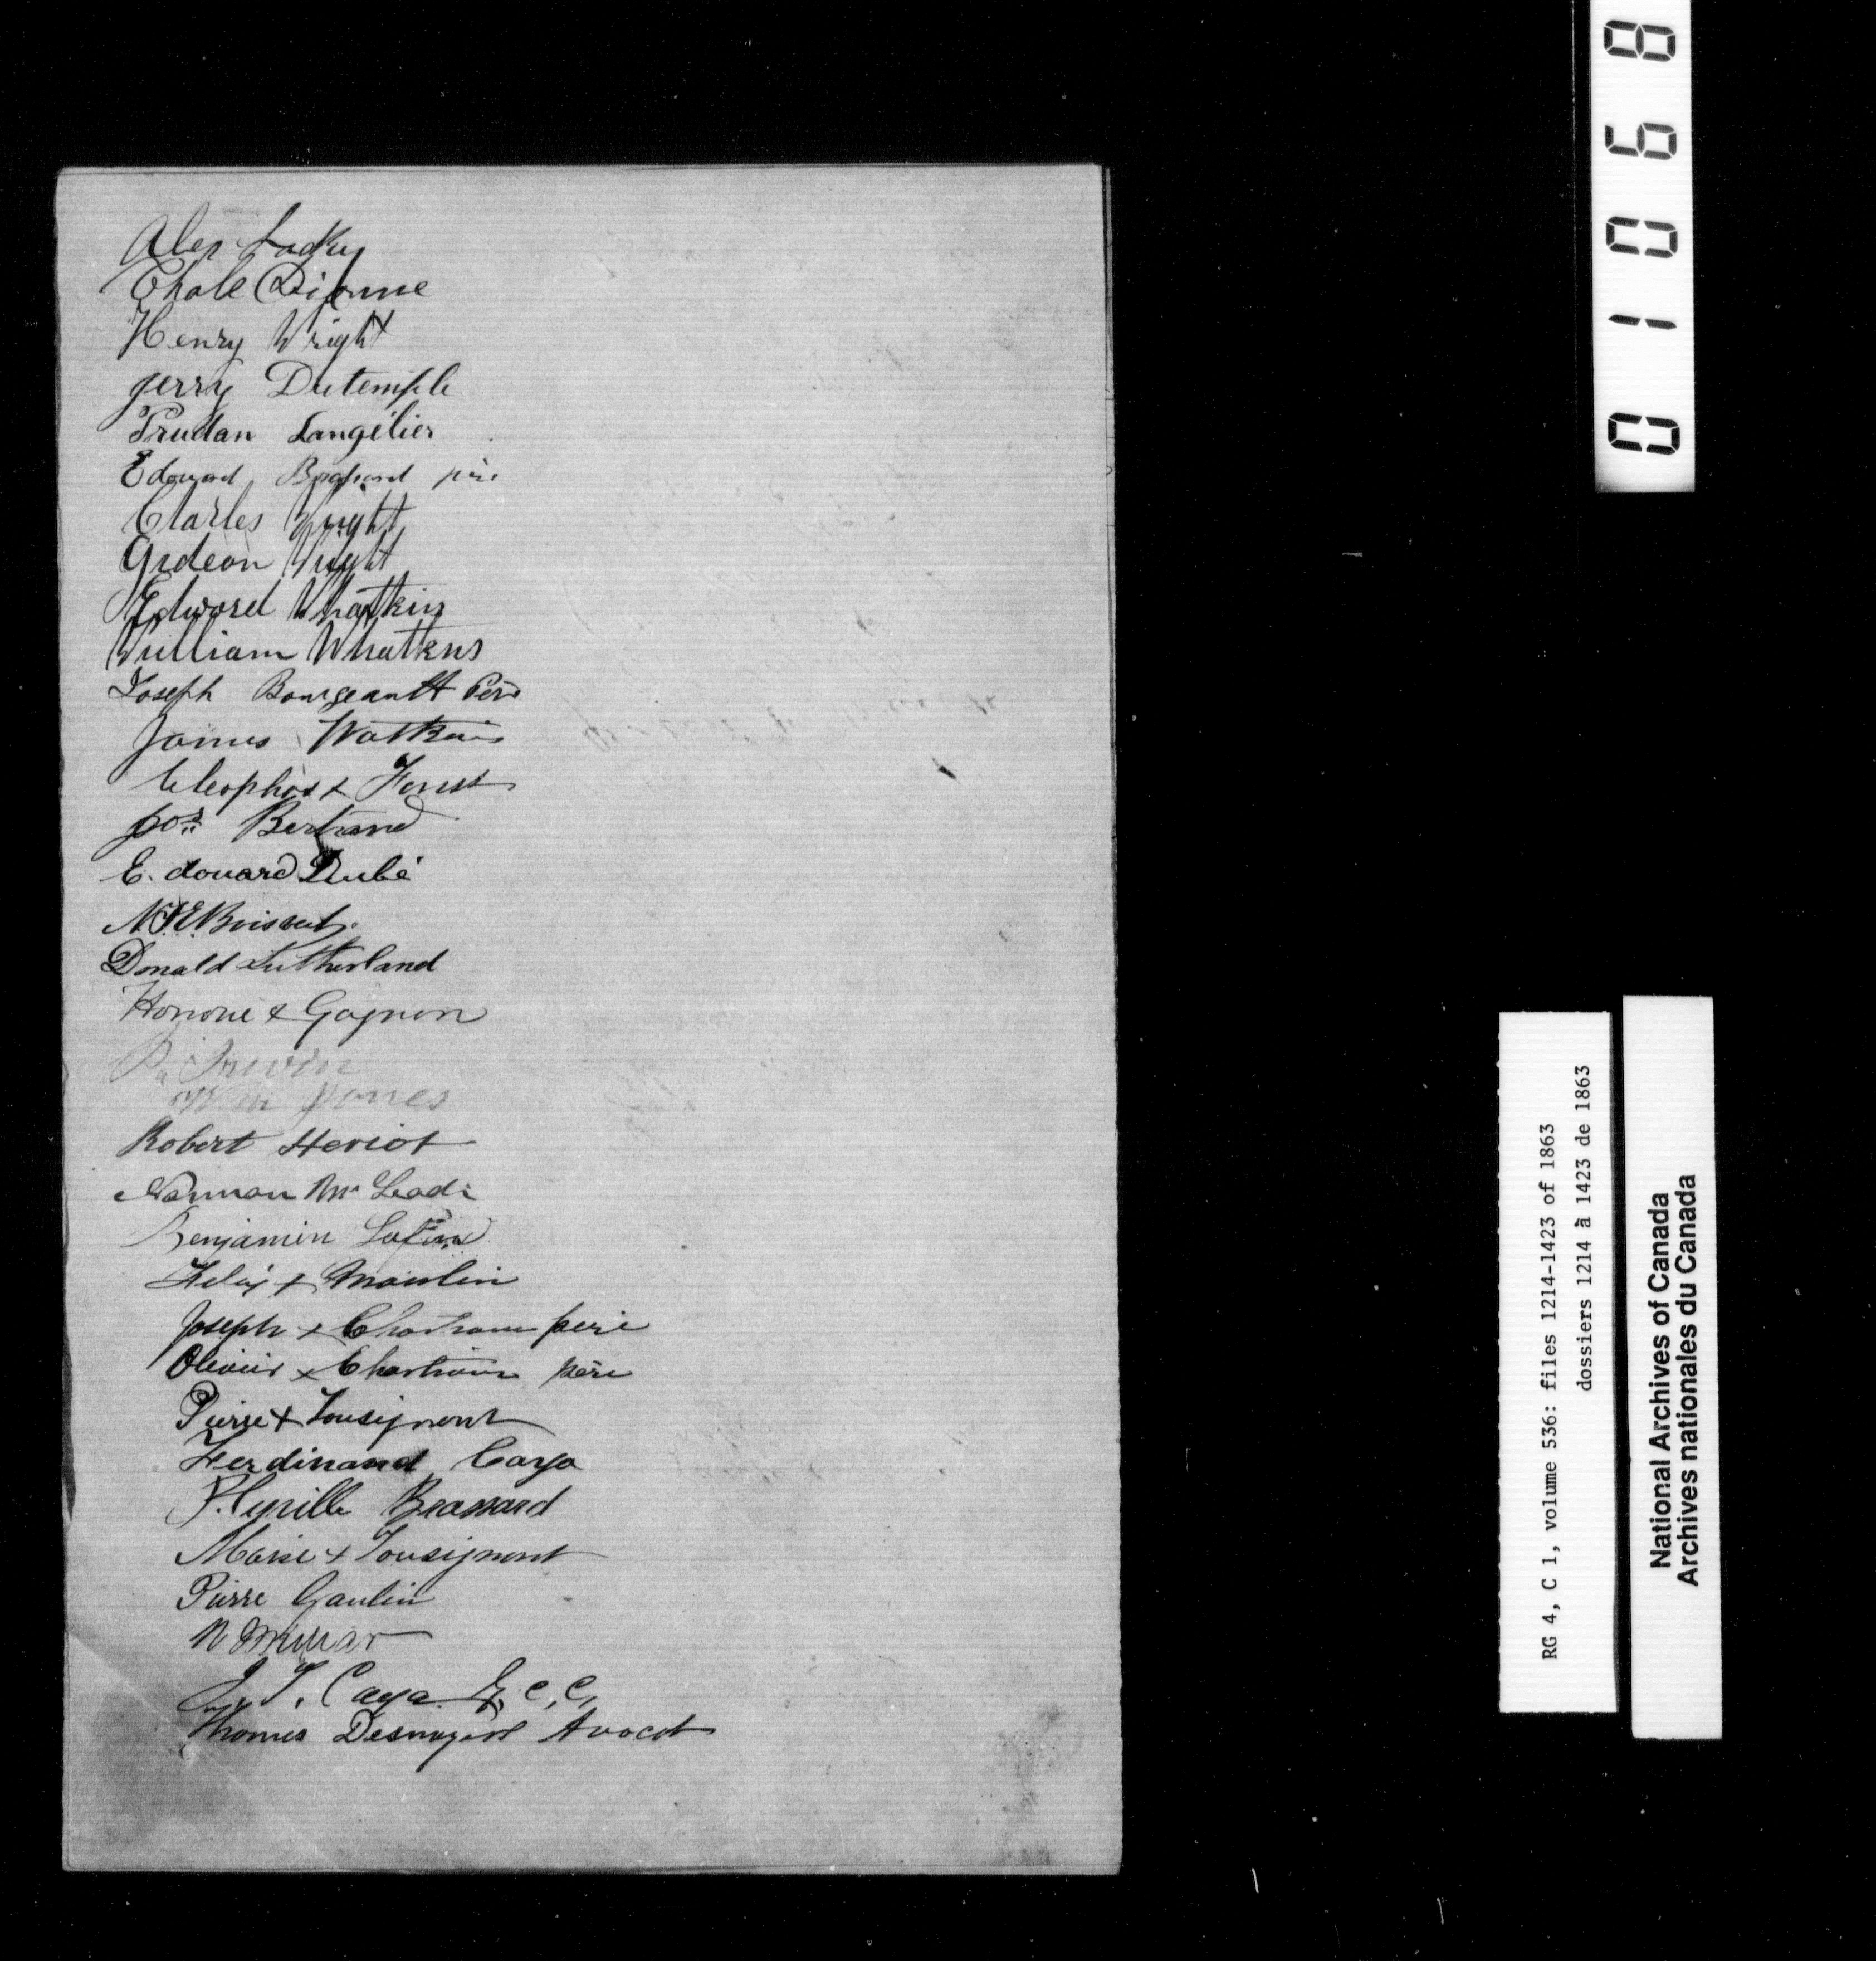 Alex Lacky
Chale Dionne
Henry Wright
Jerry Dutemple
Prudan Langélier
Edouard père
Charles Wright
Gideon Wright
Edward Whatkins
William Whatkins
Joseph Bourgeault Père
James Watkins
Cleophas + Forest
Jos Bertrand
E. douard Dubé
N. Boisvert
Donald Sutherland
Honoré + Gagnon
P. Irwin
Wm Jones
Robert Heriot
Norman Mc Leod
Benjamin
Felix + Moulin
Joseph + père
Olivier x père
Pierre + Tousignant
Ferdinand Caya
P. Cyrille Brassard
Moïse + Tousignant
Pierre Gaulin
N Millar
J. T. Caya G, C, C,
Thomas Avocat
010698
RG 4, C 1, volume 536: files 1214-1423 of 1863
dossiers 1214 à 1423 de 1863
National Archives of Canada
Archives nationales du Canada